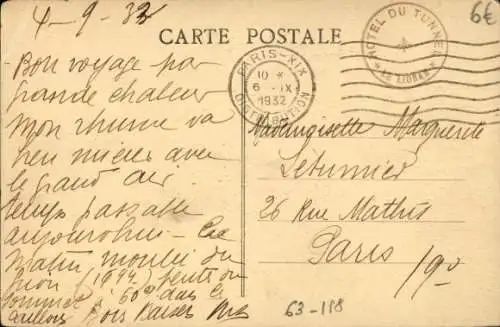 4-9-32
6€
CARTE POSTALE
HOTEL DU TUNNEL
LE LIORAN
PARIS-XIX
10 *
6 - IX
1932
DISTRIBUTION
Bon voyage par
grande chaleur
Mon rhume va
bien mieux avec
le grand air
temps passable
aujourd'hui - Ce
matin monté du
(1494)
sommet 60 dans le
Bons Baisers
Mademoiselle Marguerite
Létumier
26 Rue Mathis
Paris
19e
63-118